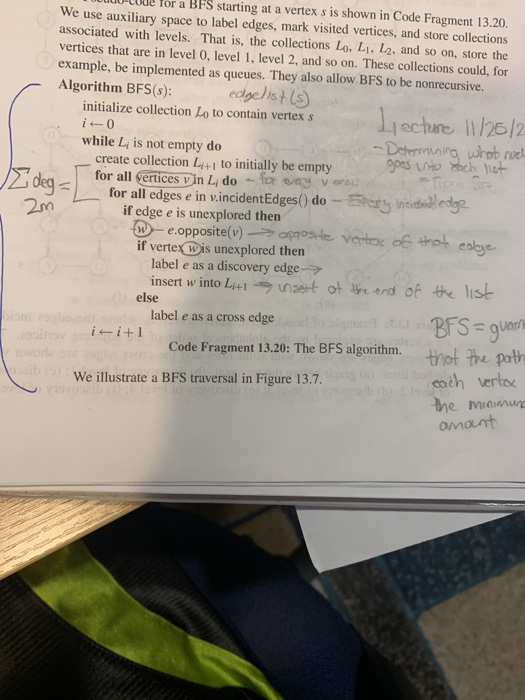 for a BFS starting at a vertex s is shown in Code Fragment 13.20.
We use auxiliary space to label edges, mark visited vertices, and store collections
associated with levels. That is, the collections L0, L1, L2, and so on, store the
vertices that are in level 0, level 1, level 2, and so on. These collections could, for
example, be implemented as queues. They also allow BFS to be nonrecursive.
Algorithm BFS(s):
edgelist(s)
initialize collection L0 to contain vertex s
i ← 0
Lecture 11/25/2
while Li is not empty do
- Determining what
create collection Li+1 to initially be empty
goes into each list
Σ deg =
2m
for all vertices v in Li do - for every v
for all edges e in v.incidentEdges() do - Every edge
if edge e is unexplored then
w ← e.opposite(v) → opposite vertex of that edge
if vertex w is unexplored then
label e as a discovery edge →
insert w into Li+1 → insert at the end of the list
else
label e as a cross edge
i ← i + 1
Code Fragment 13.20: The BFS algorithm.
BFS = guarn
that the path
We illustrate a BFS traversal in Figure 13.7.
each vertex
the minimum
amount